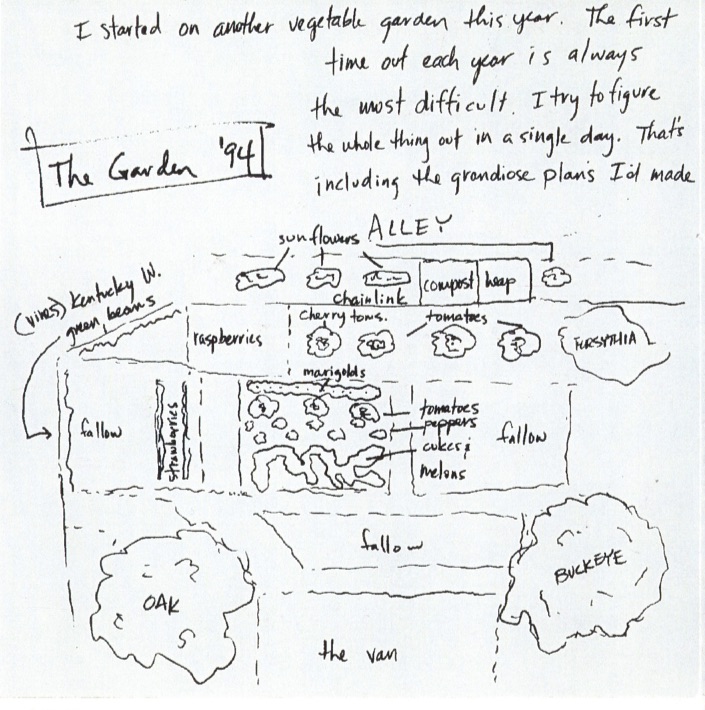 I started on another vegetable garden this year. The first
time out each year is always
the most difficult. I try to figure
the whole thing out in a single day. That's
including the grandiose plans I'd made
The Garden '94
ALLEY
sunflowers
(vines) Kentucky W.
green beans
compost heap
chainlink
cherry toms. tomatoes
raspberries
FORSYTHIA
marigolds
tomatoes
peppers
cukes &
melons
fallow
strawberries
fallow
fallow
OAK
BUCKEYE
the van